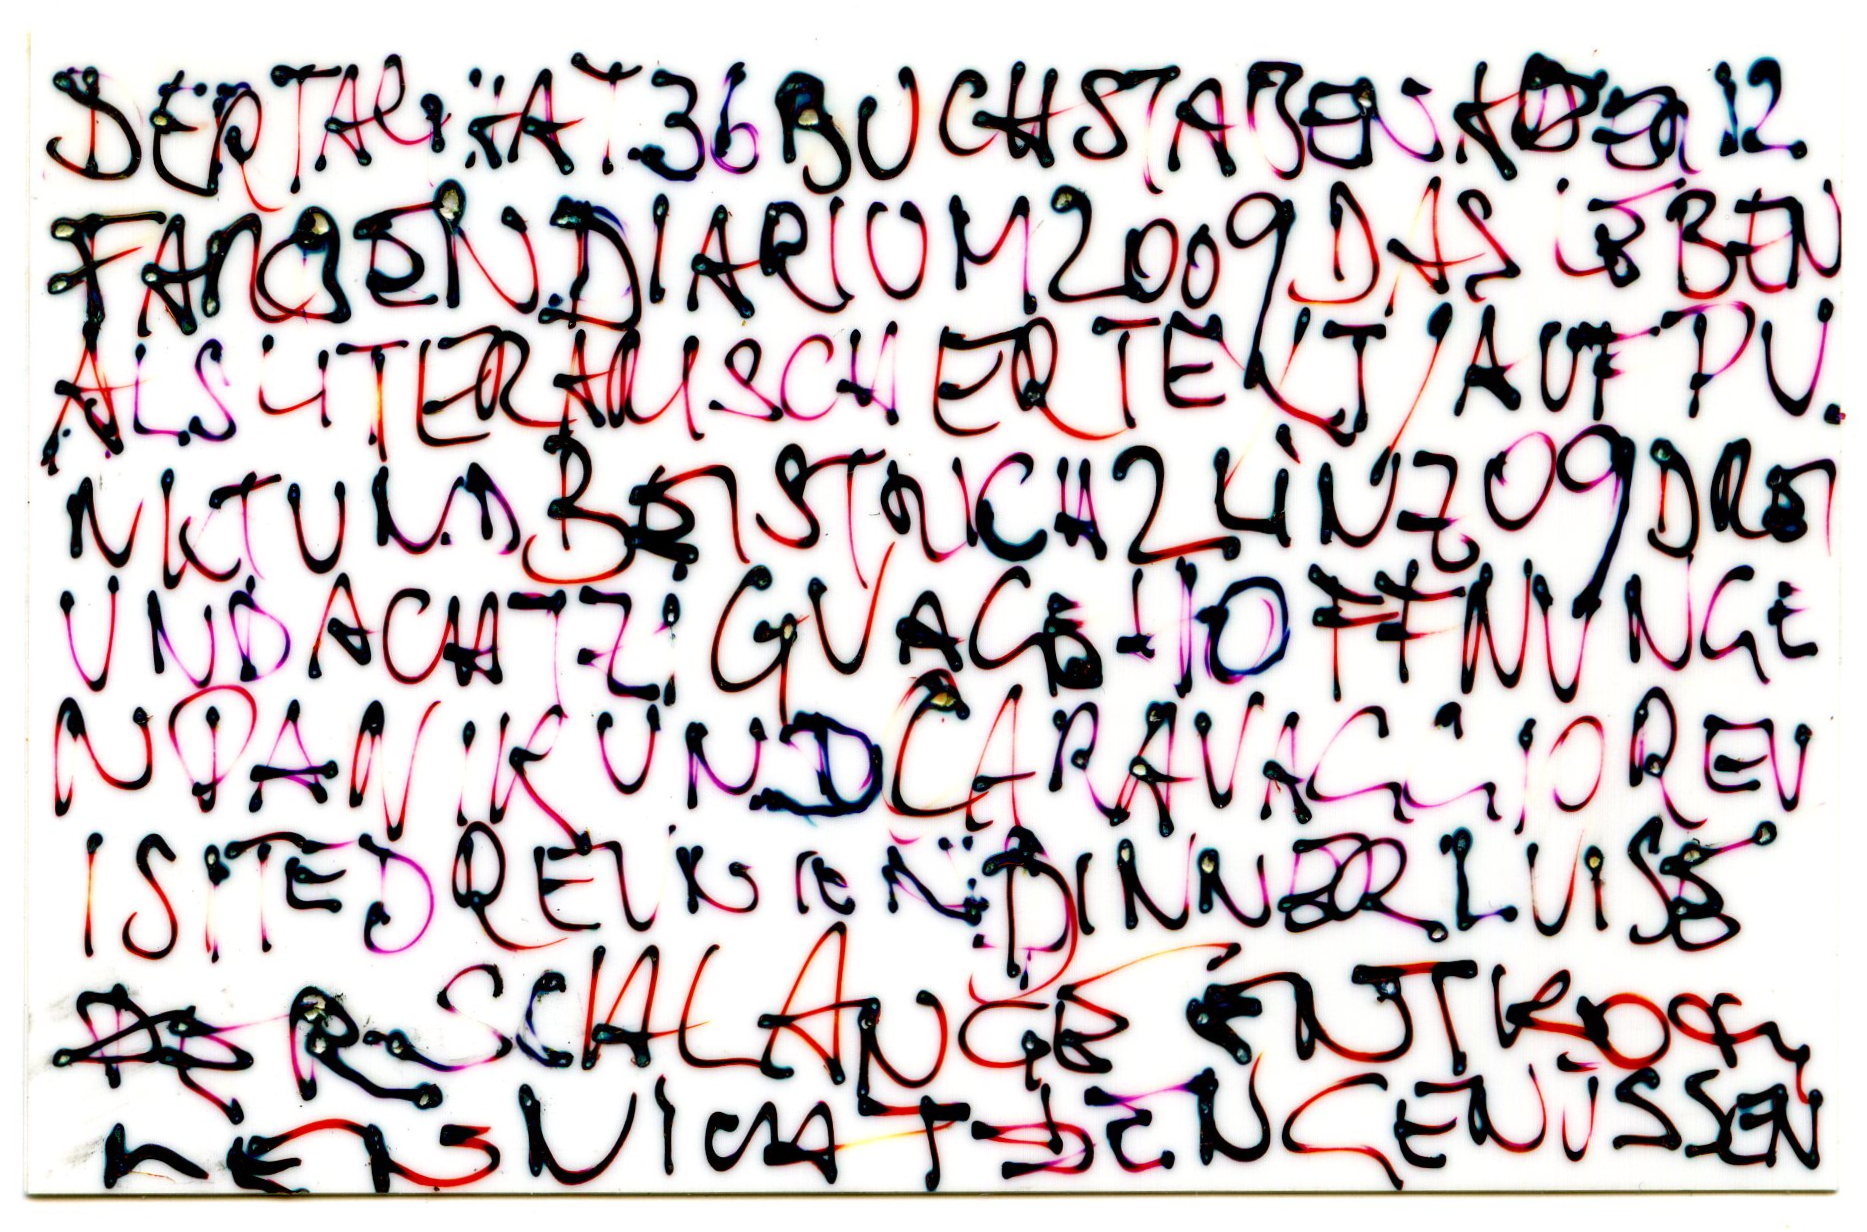 HAT 36 BUCHSTABEN 12
FANGEN DIARIUM 2009 DAS LEBEN
ALS LITERARISCHER TEXT / AUF PU.
NKT UND BEISTRICH 2 LINZ 09 DREI
UNDACHTZIG VAGE HOFFNUNGE
N PANIK UND CARAVAGGIO REV
ISITED DINNER LUISE
DER SCHLANGE
NICHT DEN GENÜSSEN